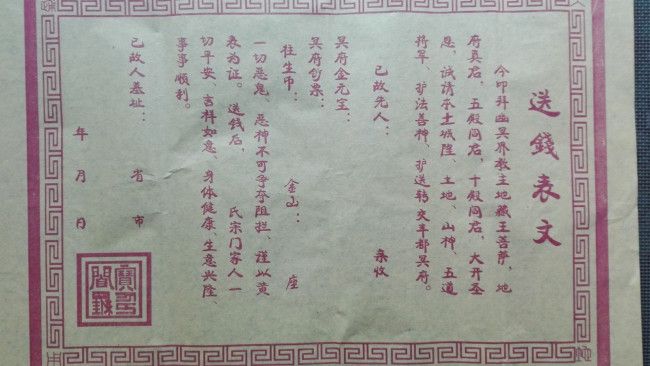 送錢表文
今叩拜幽冥界教主地藏王菩萨,地
府真君,五殿阎君,十殿阎君,大开圣
恩,诚请本土城隍、土地、山神、五道
将军、护法善神、护送转交丰都冥府。
已故先人: 亲收
冥府金元宝:
冥府钞票:
往生币: 金山: 座
一切恶鬼、恶神不可争夺阻拦、谨以黄
表为证。 送钱后, 氏宗门家人一
切平安、吉祥如意、身体健康、生意兴隆、
事事顺利。
已故人墓址: 省 市
年 月 日